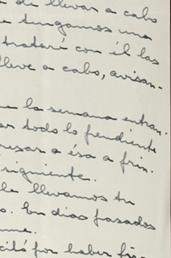 de llevar a cabo
tengamos una
tratare con él las
lleve a cabo, avisan-
la semana entran.
todo lo pendiente
regresar a ésa a prin-
siguiente.
le llevamos tu
o. En dias pasados
me.
citó por haber